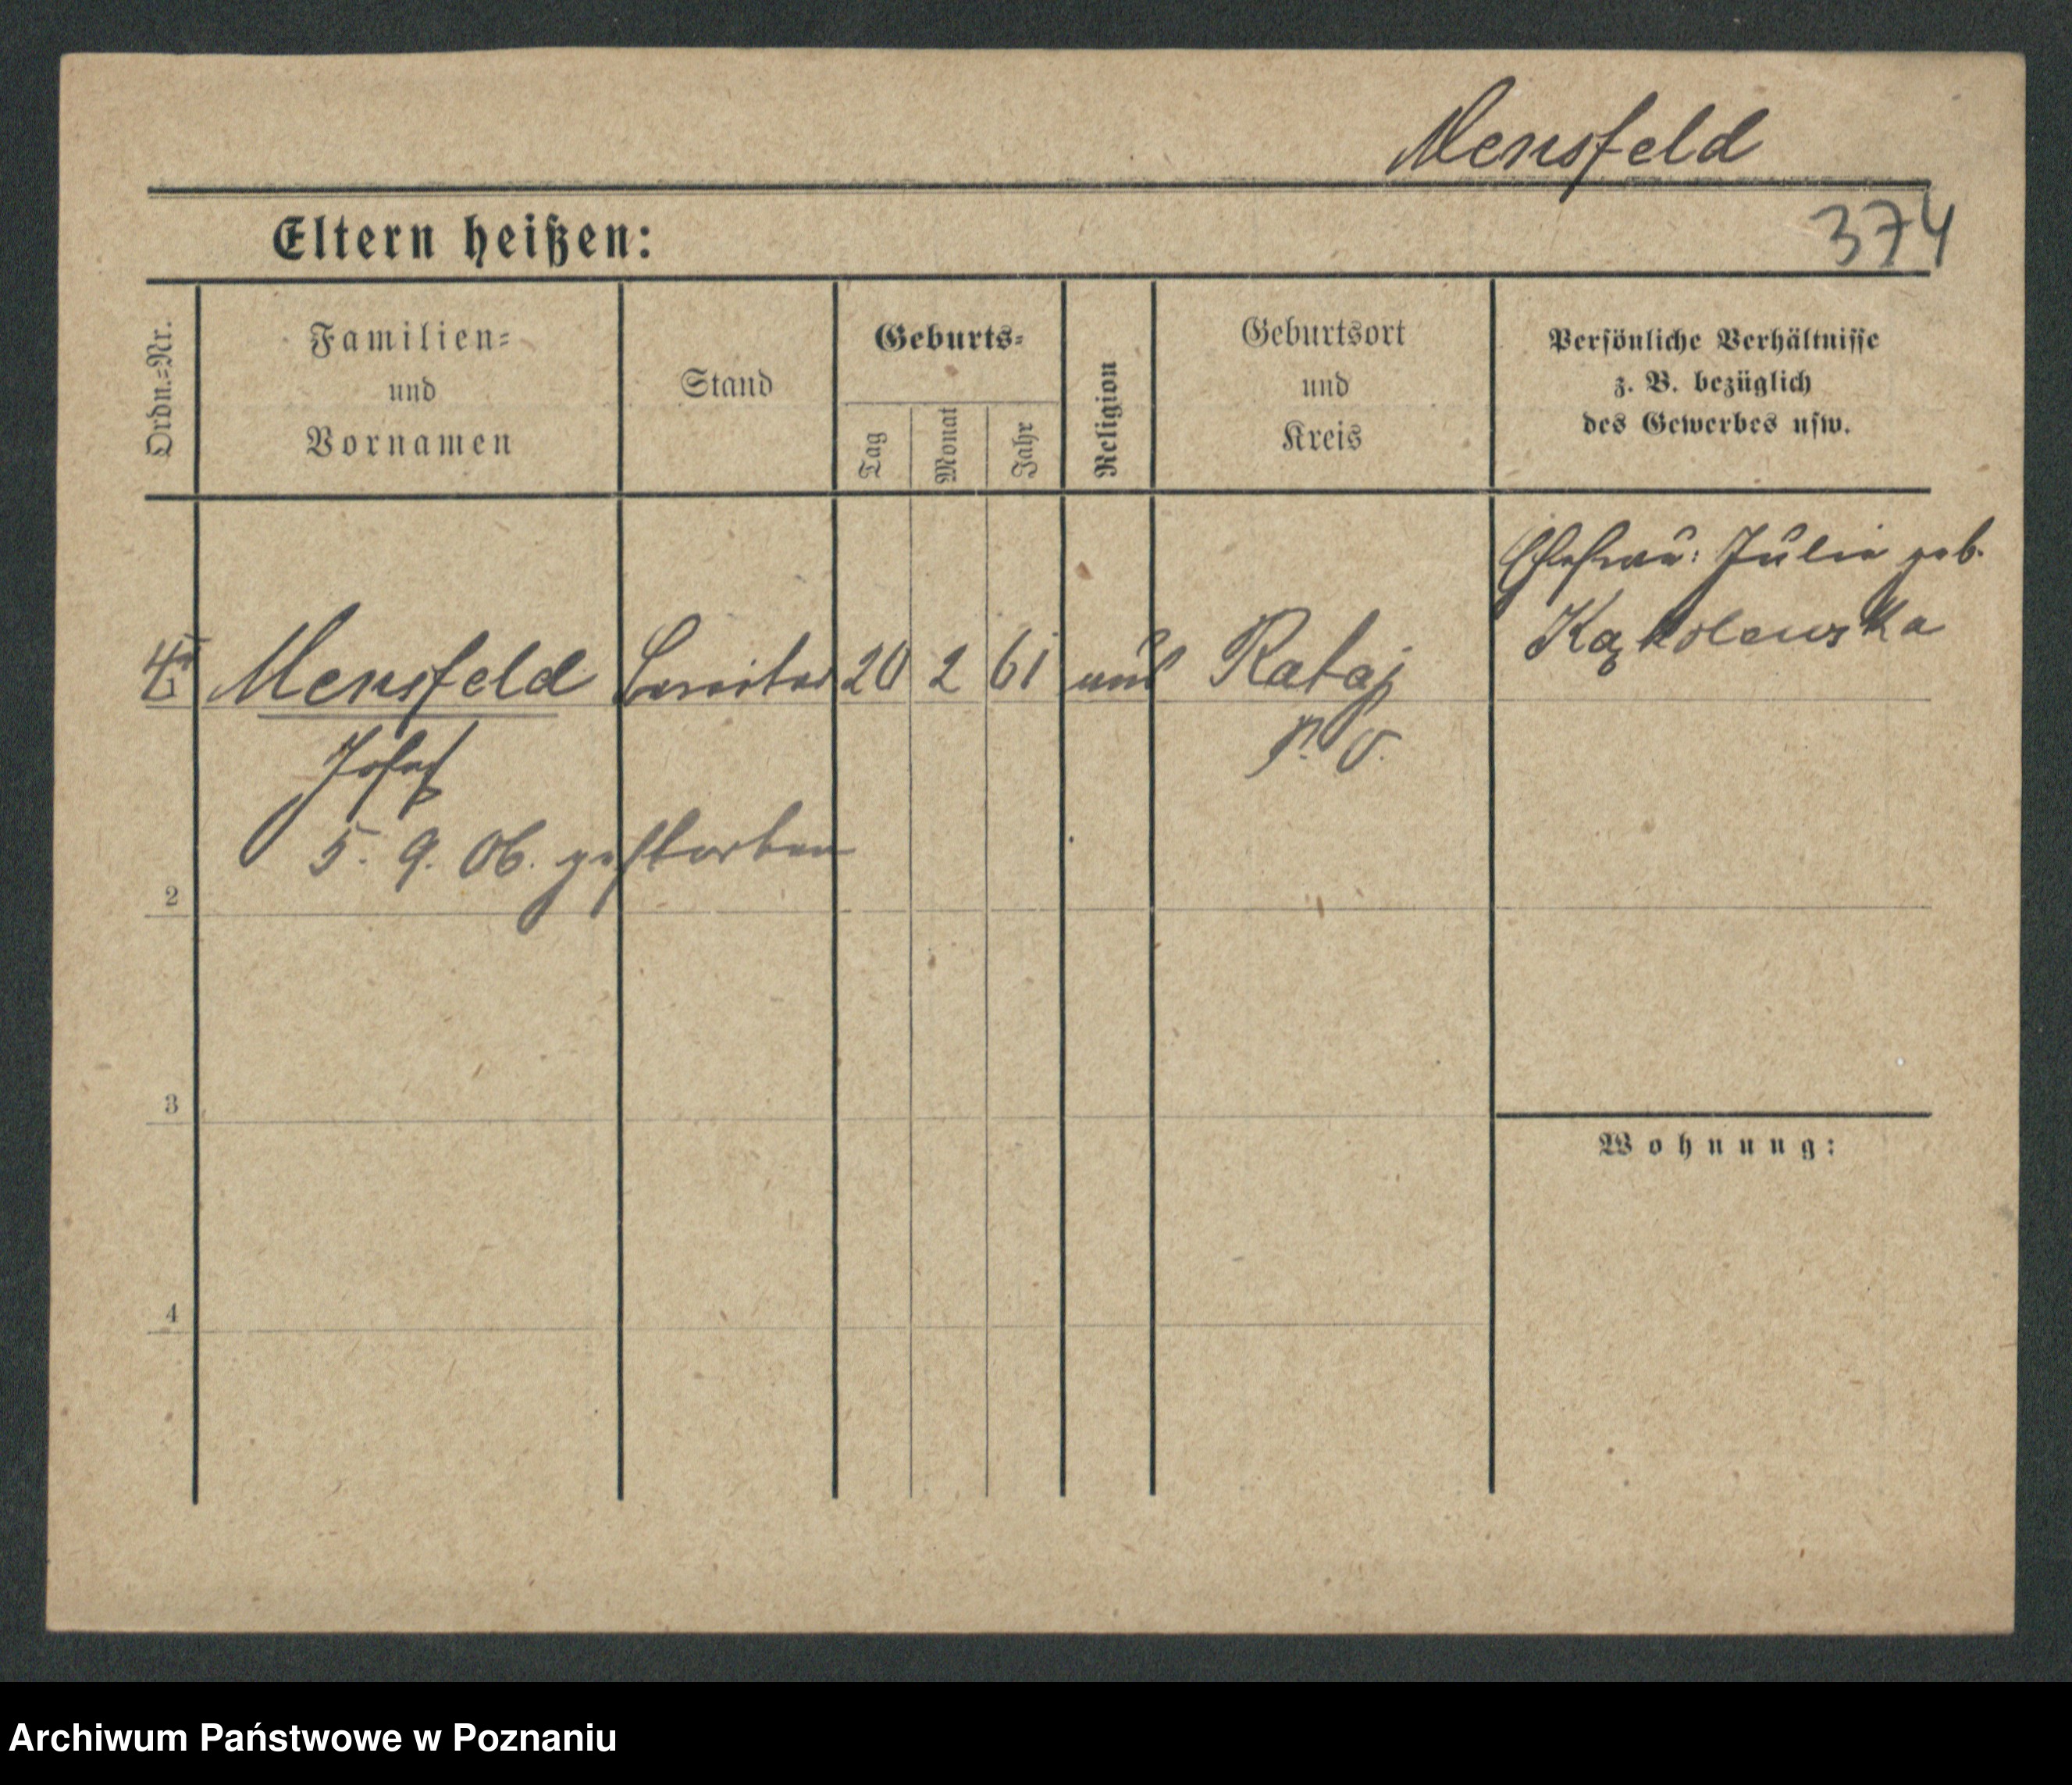 Mensfeld
374
Eltern heißen:
Ordn.=Nr.
Familien=
und
Vornamen
Stand
Geburts=
Tag
Monat
Jahr
Religion
Geburtsort
und
Kreis
Persönliche Verhältnisse
z. B. bezüglich
des Gewerbes usw.
Ehefrau: Julie geb.
Kąkolewska
Mensfeld 20 2 61 Rataj
Josef p. O.
5. 9. 06. gestorben
2
3
Wohnung:
4
Archiwum Państwowe w Poznaniu